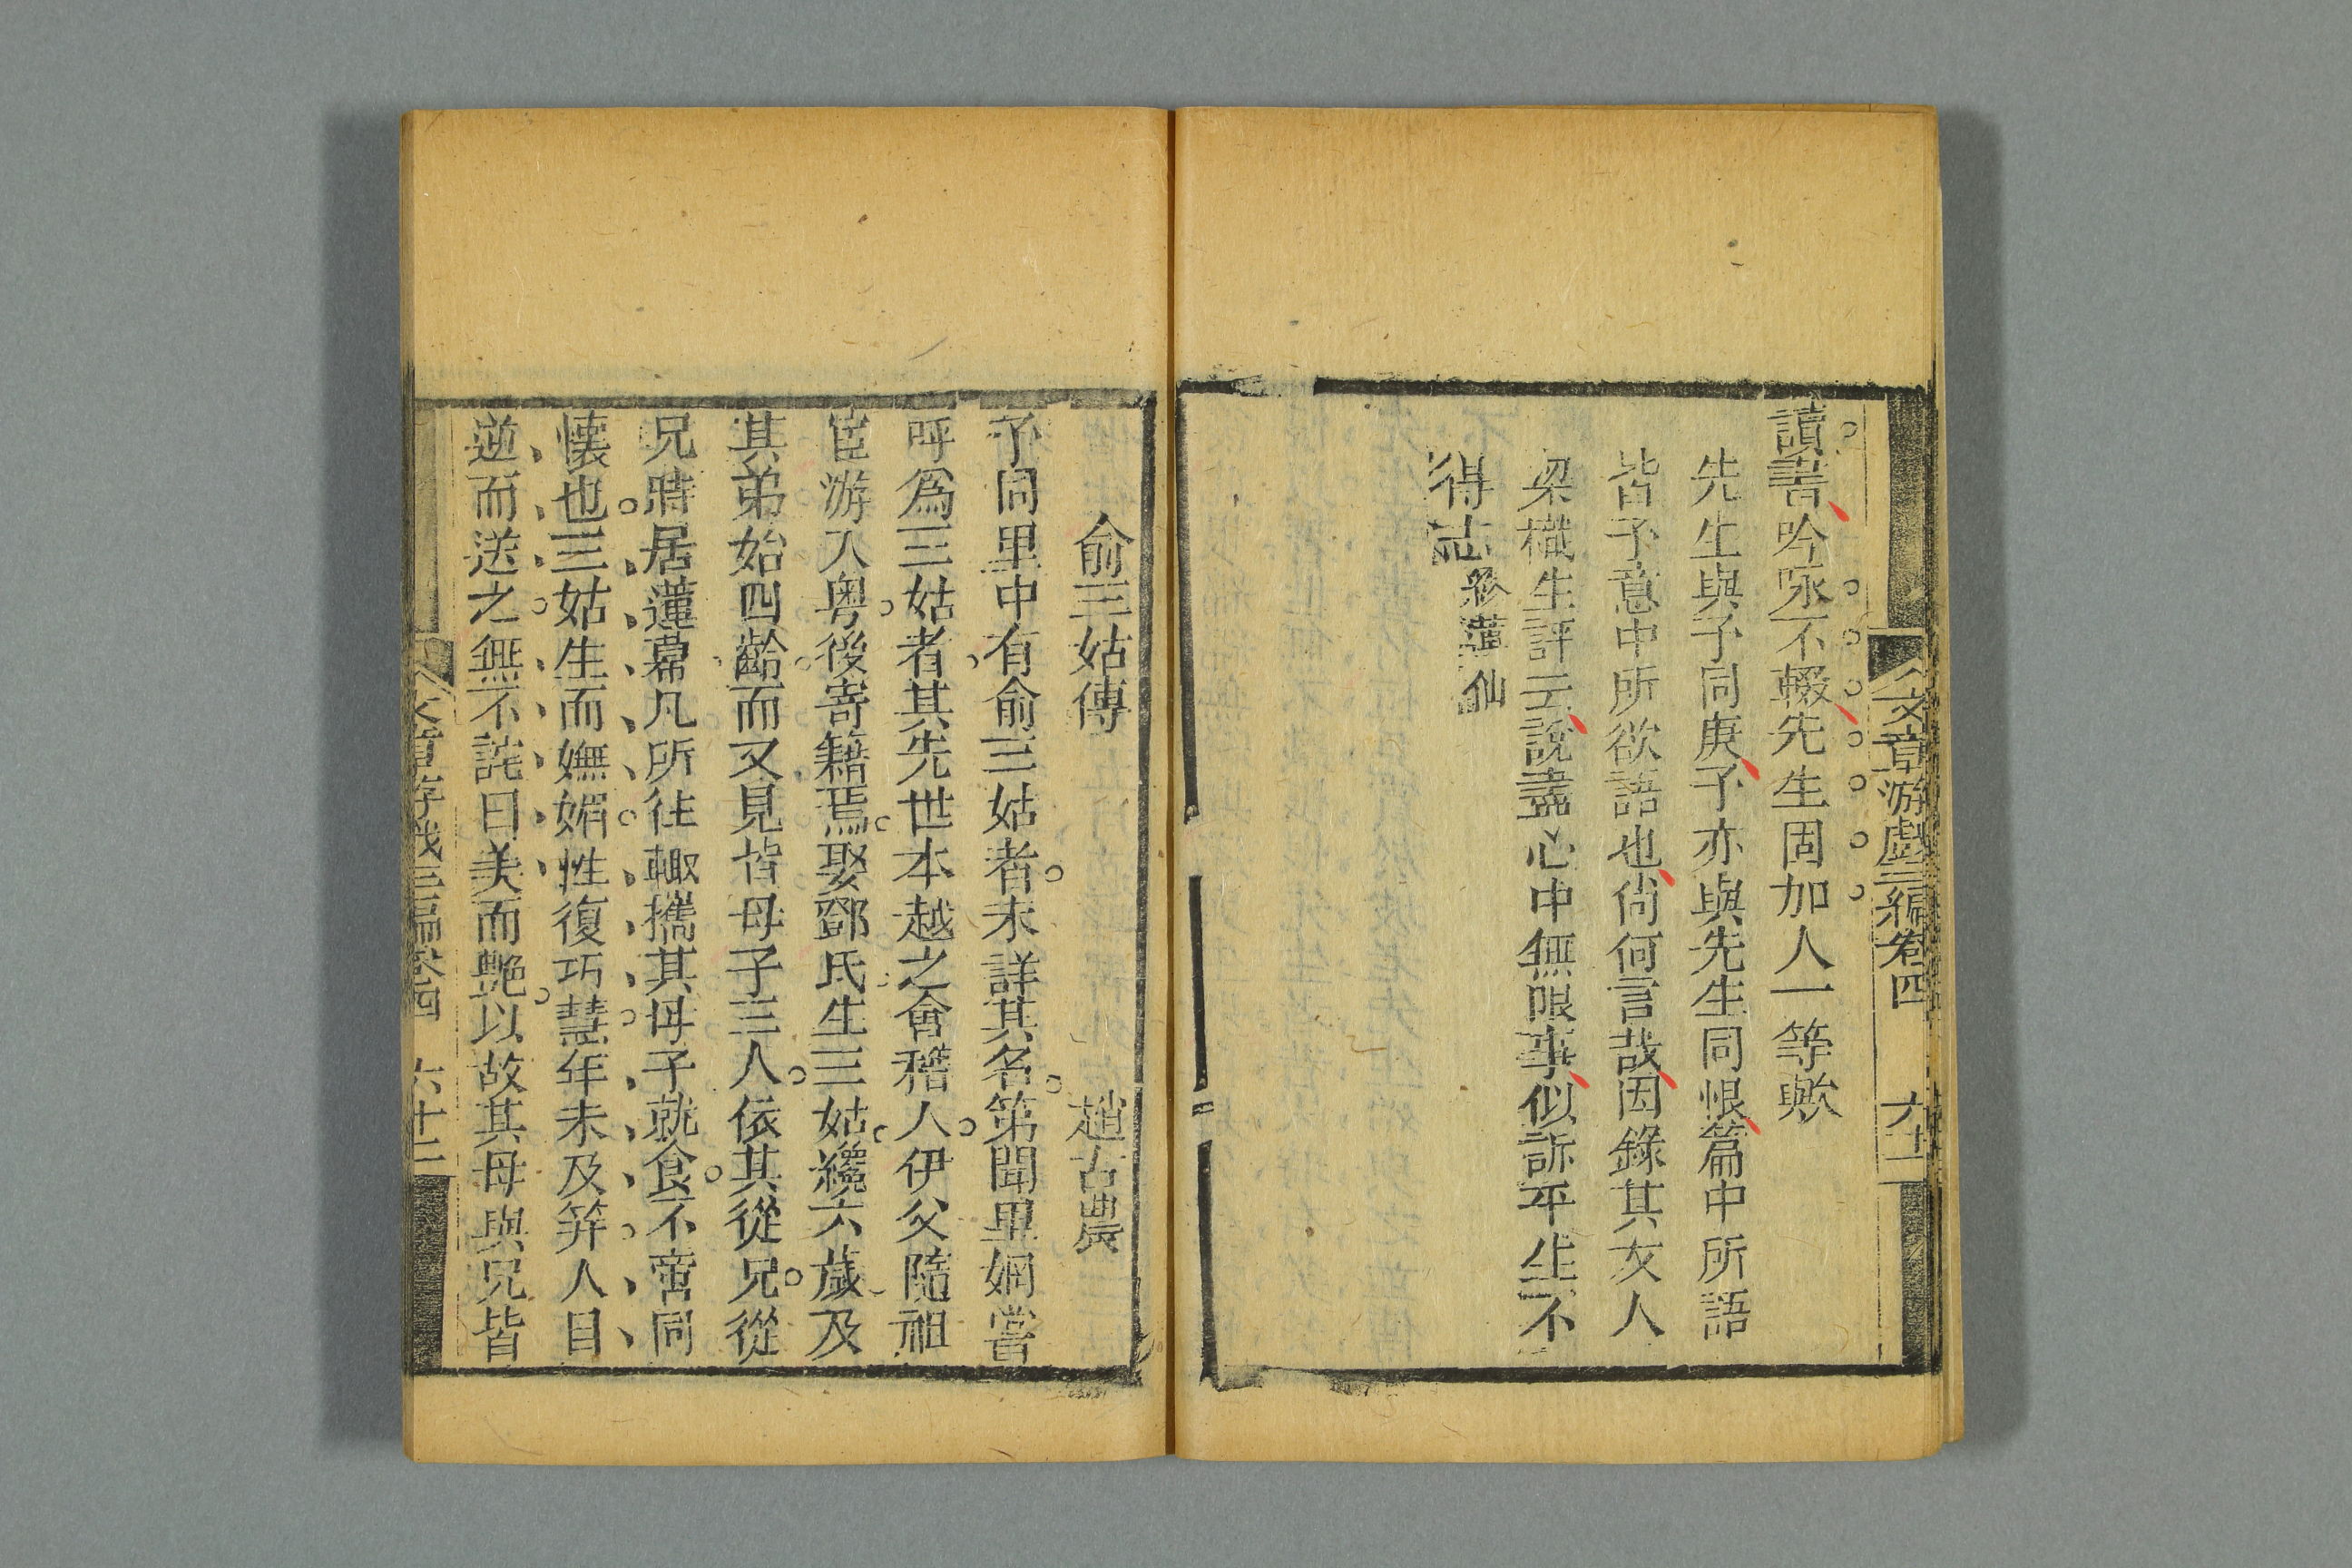 文章游戲三編卷四　六十一
讀書吟咏不輟先生固加人一等歟
先生與予同庚予亦與先生同恨篇中所語
皆予意中所欲語也尙何言哉因錄其友人
梁檝生評云說盡心中無限事似訴平生不
得志繆蓮仙
俞三姑傳　趙古農
予同里中有俞三姑者未詳其名第聞里姻嘗
呼爲三姑者其先世本越之會稽人伊父隨祖
宦游入粤後寄籍焉娶鄧氏生三姑纔六歲及
其弟始四齡而又見背母子三人依其從兄從
兄時居蓮幕凡所往輙攜其母子就食不啻同
懷也三姑生而嫵媚性復巧慧年未及笄人目
逆而送之無不詫曰美而艷以故其母與兄皆
文章游戲三編卷四　六十二